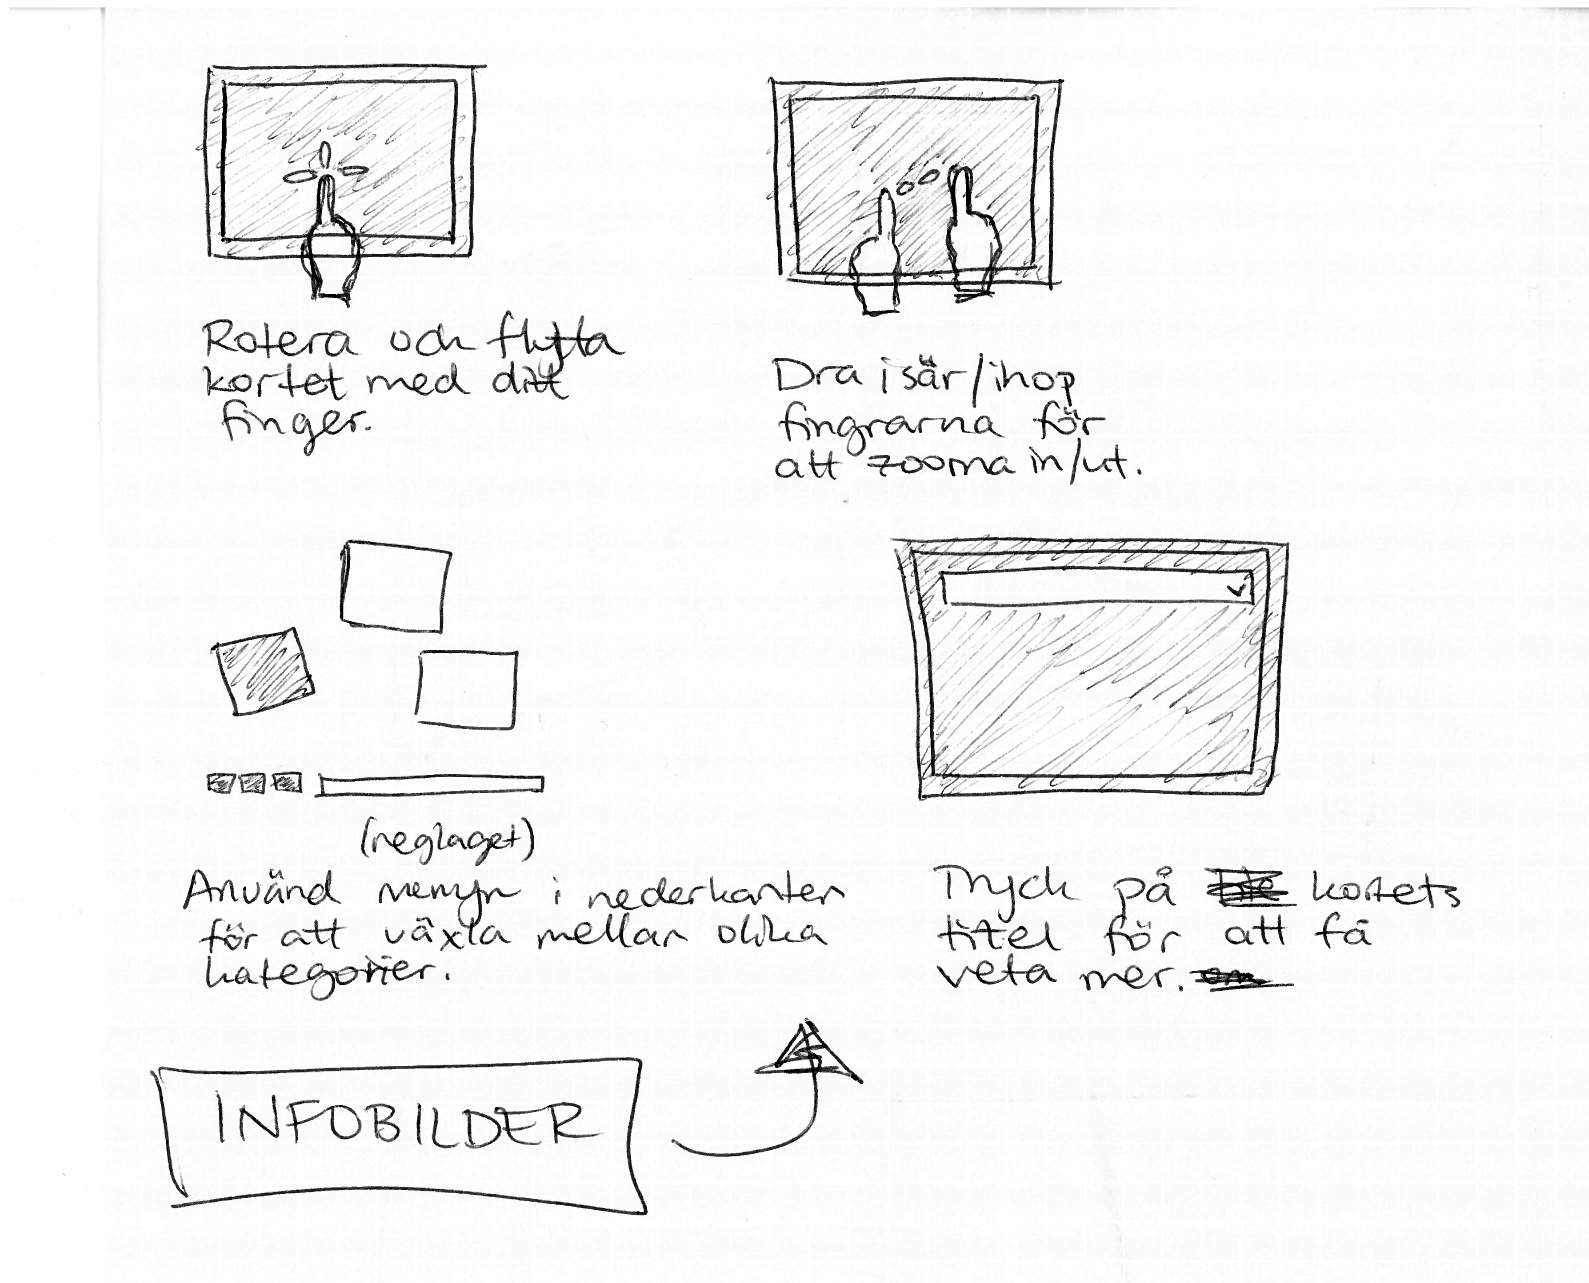 Rotera och flytta
kortet med ditt
finger.
Dra isär/ihop
fingrarna för
att zooma in/ut.
(reglaget)
Använd menyn i nederkanten
för att växla mellan olika
kategorier.
Tryck på kortets
titel för att få
veta mer.
INFOBILDER